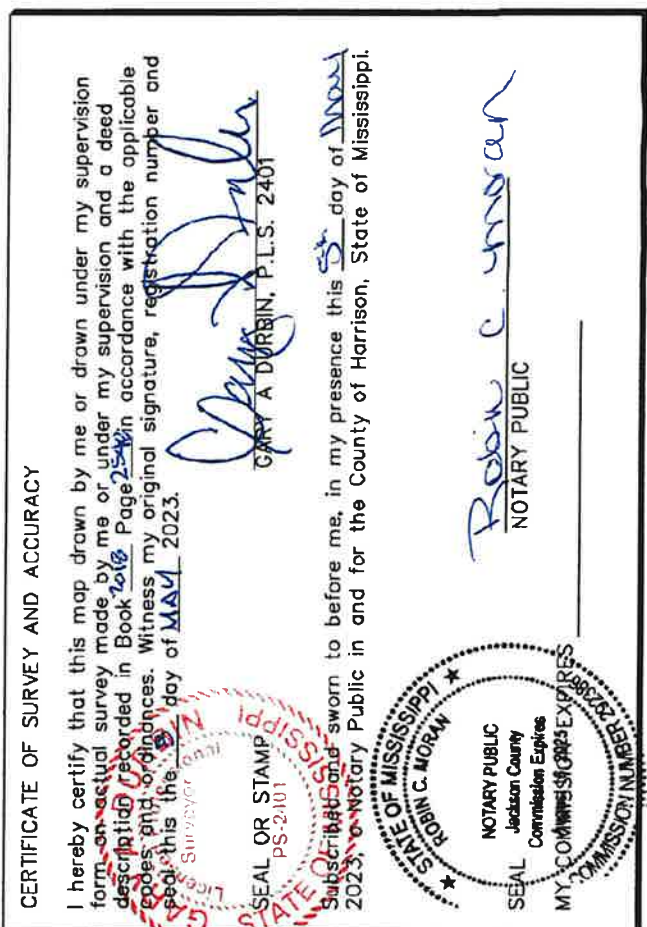 CERTIFICATE OF SURVEY AND ACCURACY
I hereby certify that this map drawn by me or drawn under my supervision
form an actual survey made by me or under my supervision and a deed
description recorded in Book 2018 Page 2546 in accordance with the applicable
codes and ordinances. Witness my original signature, registration number and
seal this the day of MAY 2023.
GARY A DURBIN, P.L.S. 2401
SEAL OR STAMP
GARY A DURBIN
Licensed Professional
Surveyor
PS-2401
STATE OF MISSISSIPPI
Subscribed and sworn to before me, in my presence this 5th day of May
2023, a Notary Public in and for the County of Harrison, State of Mississippi.
Robin C. Moran
NOTARY PUBLIC
SEAL
MY COMMISSION EXPIRES
STATE OF MISSISSIPPI
ROBIN C. MORAN
NOTARY PUBLIC
Jackson County
Commission Expires
COMMISSION NUMBER 292386